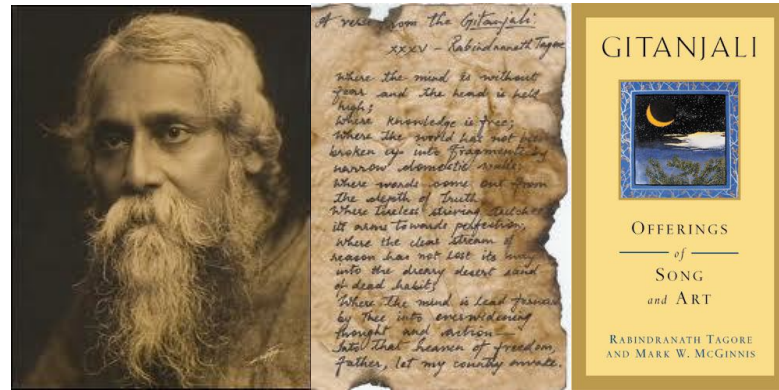 A verse from the Gitanjali.
XXXV - Rabindranath Tagore
Where the mind is without
fear and the head is held
high;
Where knowledge is free;
Where the world has not been
broken up into fragments by
narrow domestic walls;
Where words come out from
the depth of truth;
Where tireless striving stretches
its arms towards perfection,
Where the clear stream of
reason has not lost its way
into the dreary desert sand
of dead habit;
Where the mind is lead forward
by Thee into ever-widening
thought and action-
Into that heaven of freedom,
Father, let my country awake.
GITANJALI
OFFERINGS
of
SONG
and ART
RABINDRANATH TAGORE
AND MARK W. MCGINNIS